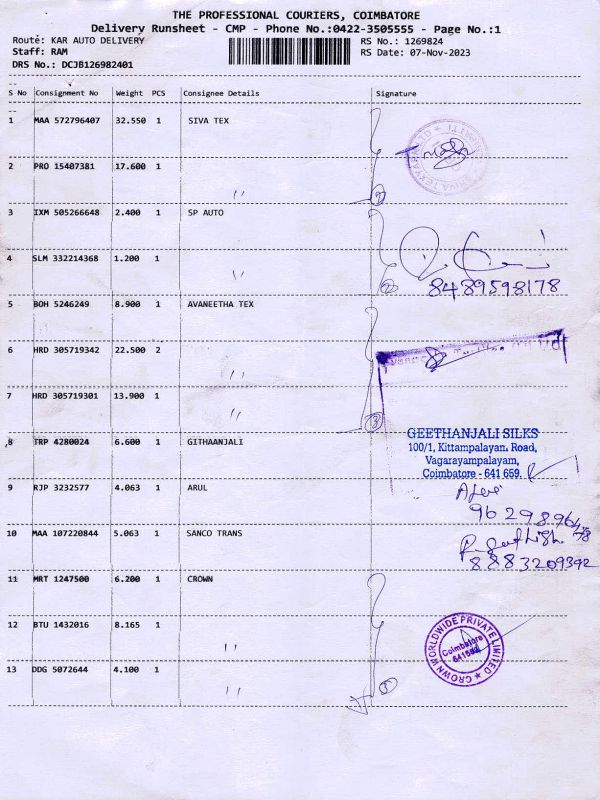 THE PROFESSIONAL COURIERS, COIMBATORE
Delivery Runsheet - CMP - Phone No.:0422-3505555 - Page No.:1
Route: KAR AUTO DELIVERY RS No.: 1269824
Staff: RAM RS Date: 07-Nov-2023
DRS No.: DCJB126982401
S No Consignment No Weight PCS Consignee Details Signature
1 MAA 572796407 32.550 1 SIVA TEX
2 PRO 15407381 17.600 1 "
3 IXM 505266648 2.400 1 SP AUTO
4 SLM 332214368 1.200 1 "
8489598178
5 BOH 5246249 8.900 1 AVANEETHA TEX
6 HRD 305719342 22.500 2 "
7 HRD 305719301 13.900 1 "
③
8 TRP 4280024 6.600 1 GITHAANJALI
GEETHANJALI SILKS
100/1, Kittampalayan. Road,
Vagarayampalayam,
Coimbatore - 641 659.
9 RJP 3232577 4.063 1 ARUL
10 MAA 107220844 5.063 1 SANCO TRANS
8883209392
11 MRT 1247500 6.200 1 CROWN
12 BTU 1432016 8.165 1 "
CROWN WORLDWIDE PRIVATE LIMITED
Coimbatore
13 DDG 5072644 4.100 1 "